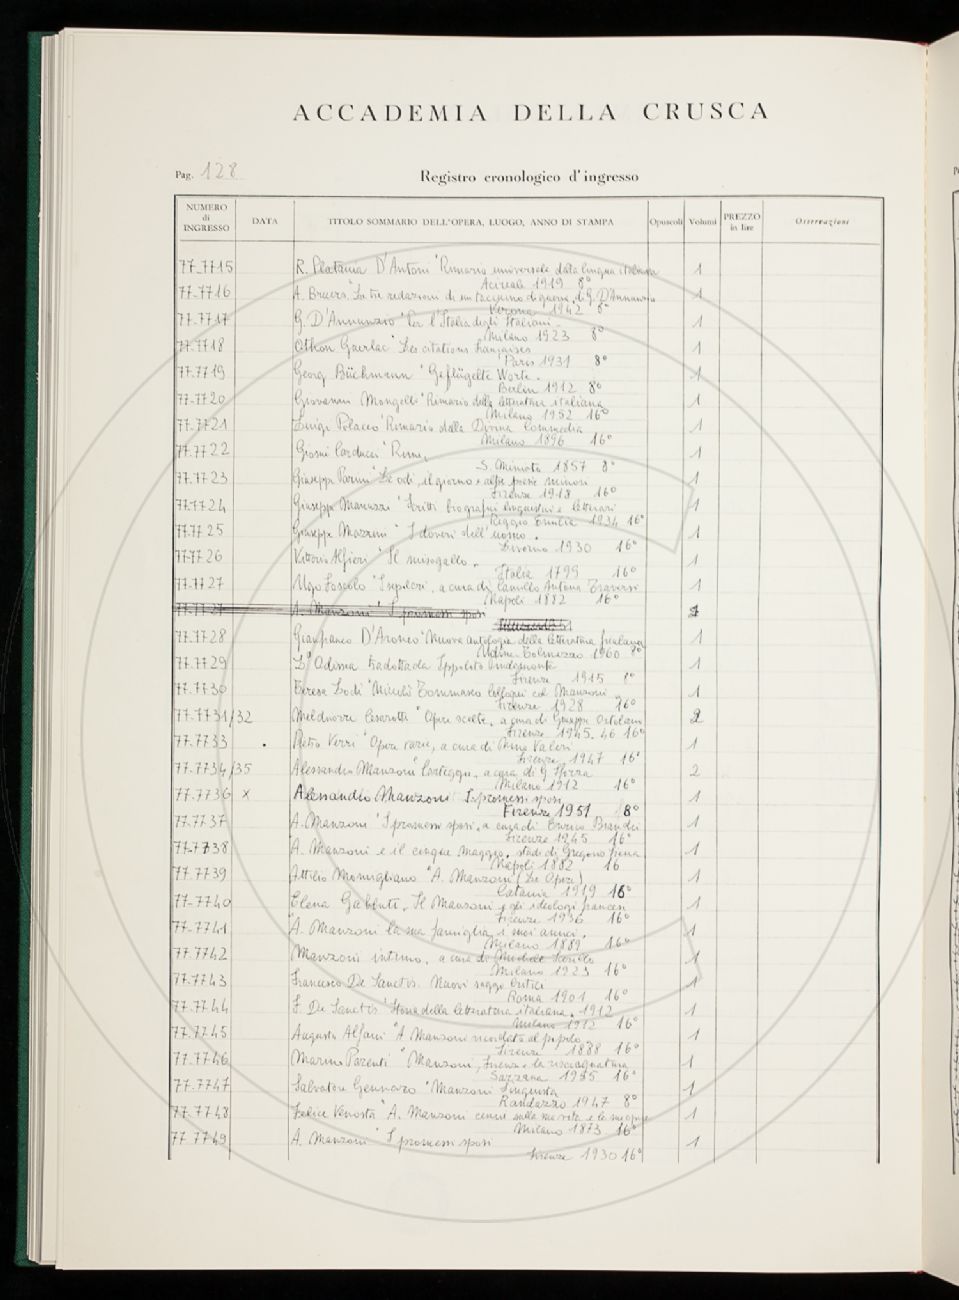 ACCADEMIA DELLA CRUSCA
Pag. 128
Registro cronologico d'ingresso
NUMERO di INGRESSO DATA TITOLO SOMMARIO DELL'OPERA, LUOGO, ANNO DI STAMPA Opuscoli Volumi PREZZO in lire Osservazioni
77.7715 R. Platania D'Antoni "Rimario universale della lingua italiana 1
Acireale 1919 8°
77.7716 A. Bruers "Le tre redazioni di un taccuino di guerra di G. D'Annunzio 1
Verona 1942 8°
77.7717 G. D'Annunzio "Per l'Italia degli Italiani 1
Milano 1923 8°
77.7718 Othon Guerlac "Les citations françaises 1
Paris 1931 8°
77.7719 Georg Büchmann "Geflügelte Worte. 1
Berlin 1912 8°
77.7720 Giovanni Mongelli "Rimario della letteratura italiana 1
Milano 1952 16°
77.7721 Luigi Polacco "Rimario della Divina Commedia 1
Milano 1896 16°
77.7722 Giosuè Carducci "Rime. 1
S. Miniato 1857 8°
77.7723 Giuseppe Parini "Le odi, il giorno e altre poesie minori 1
Firenze 1918 16°
77.7724 Giuseppe Manuzzi "Scritti biografici linguistici e letterari 1
Reggio Emilia 1934 16°
77.7725 Giuseppe Mazzini "I doveri dell'uomo. 1
Livorno 1930 16°
77.7726 Vittorio Alfieri "Il misogallo. 1
Italia 1799 16°
77.7727 Ugo Foscolo "I sepolcri, a cura di Camillo Antona Traversi 1
Napoli 1882 16°
77.7727 A. Manzoni "I promessi sposi
77.7728 Gianfranco D'Aronco "Nuova antologia della letteratura friulana 1
Udine-Tolmezzo 1960 8°
77.7729 L'Odissea tradotta da Ippolito Pindemonte 1
Firenze 1915 8°
77.7730 Teresa Lodi "Niccolò Tommaseo colloqui col Manzoni 1
Firenze 1928 16°
77.7731/32 Melchiorre Cesarotti "Opere scelte, a cura di Giuseppe Ortolani 2
Firenze 1945.46 16°
77.7733 Pietro Verri "Opere varie, a cura di Nino Valeri 1
Firenze 1947 16°
77.7734/35 Alessandro Manzoni "Carteggio, a cura di G. Sforza 2
Milano 1912 16°
77.7736 x Alessandro Manzoni I promessi sposi 1
Firenze 1951 8°
77.7737 A. Manzoni "I promessi sposi, a cura di Enrico Bianchi 1
Firenze 1945 16°
77.7738 A. Manzoni e il cinque maggio, studi di Gregorio 1
Napoli 1882 16
77.7739 Attilio Momigliano "A. Manzoni (Le Opere) 1
Catania 1919 16°
77.7740 Elena Gabbuti "Il Manzoni e gli ideologi francesi 1
Firenze 1936 16°
77.7741 "A. Manzoni la sua famiglia i suoi amici. 1
Milano 1889 16°
77.7742 Manzoni intimo, a cura di Michele Scherillo 1
Milano 1923 16°
77.7743 Francesco De Sanctis. Nuovi saggi critici 1
Roma 1901 16°
77.7744 F. De Sanctis "Storia della letteratura italiana. 1912 1
Milano 1912 16°
77.7745 Augusto Alfani "A. Manzoni ricordato al popolo 1
Firenze 1888 16°
77.7746 Marino Parenti "Manzoni, Firenze e la risciacquatura 1
Sarzana 1935 16°
77.7747 Salvatore Gennaro "Manzoni linguista 1
Randazzo 1947 8°
77.7748 Felice Venosta "A. Manzoni cenni sulla sua vita e le sue opere 1
Milano 1873 16°
77.7749 A. Manzoni "I promessi sposi 1
Firenze 1930 16°